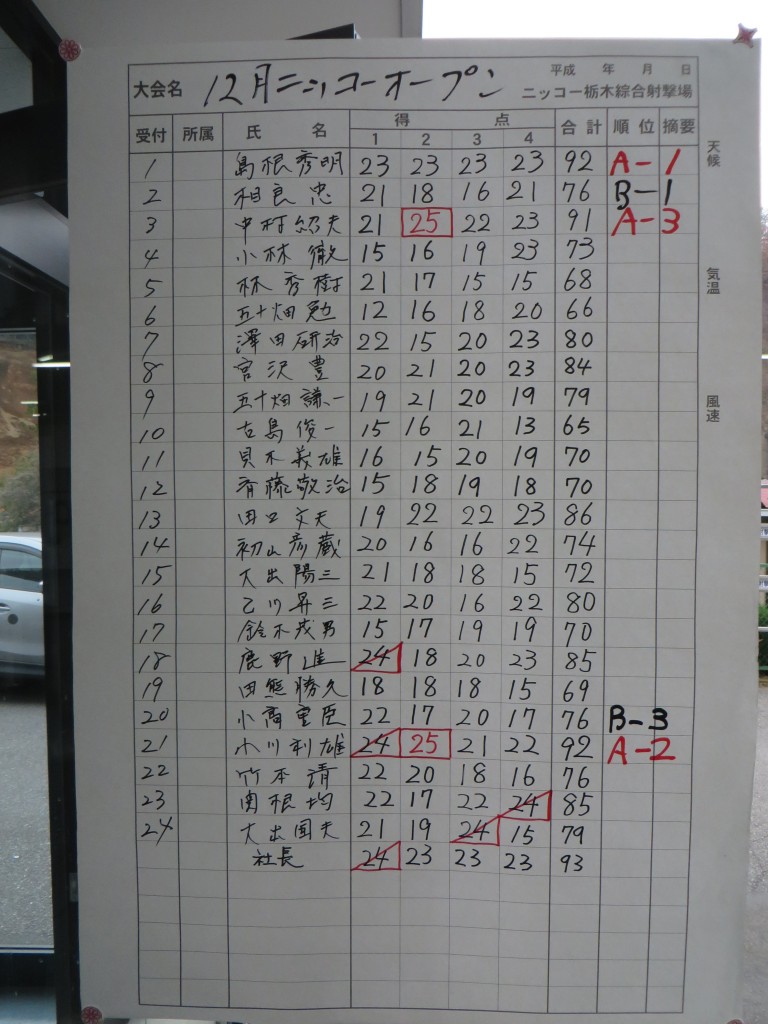 平成 年 月 日
大会名 12月ニッコーオープン ニッコー栃木綜合射撃場
受付 所属 氏 名 得 点 合計 順位 摘要
1 2 3 4
1 島根秀明 23 23 23 23 92 A-1
2 相良 忠 21 18 16 21 76 B-1
3 中村紹夫 21 25 22 23 91 A-3
4 小林 徹 15 16 19 23 73
5 林 秀樹 21 17 15 15 68
6 五十畑勉 12 16 18 20 66
7 澤田研治 22 15 20 23 80
8 宮沢 豊 20 21 20 23 84
9 五十畑謙一 19 21 20 19 79
10 古島俊一 15 16 21 13 65
11 貝木義雄 16 15 20 19 70
12 斉藤敬治 15 18 19 18 70
13 田口文夫 19 22 22 23 86
14 初山彦蔵 20 16 16 22 74
15 大出陽三 21 18 18 15 72
16 乙川昇三 22 20 16 22 80
17 鈴木茂男 15 17 19 19 70
18 鹿野進 24 18 20 23 85
19 田熊勝久 18 18 18 15 69
20 小高重臣 22 17 20 17 76 B-3
21 小川利雄 24 25 21 22 92 A-2
22 竹本 靖 22 20 18 16 76
23 関根均 22 17 22 24 85
24 大出国夫 21 19 24 15 79
社長 24 23 23 23 93
天候
気温
風速